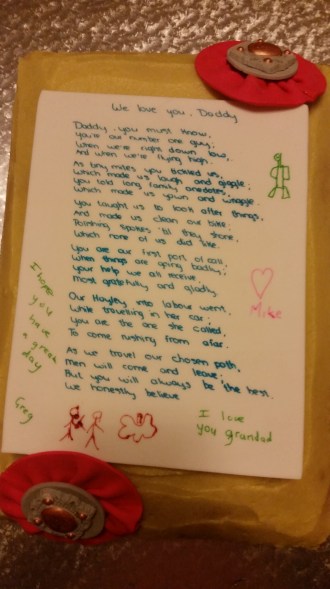 We love you, Daddy
Daddy, you must know,
You're our number one guy;
When we're right down low,
And when we're flying high.
As tiny mites you tickled us,
Which made us laugh and giggle;
You told long family anecdotes,
Which made us yawn and wriggle.
You taught us to look after things,
And made us clean our bike;
Polishing spokes 'til they shone,
Which none of us did like.
You are our first port of call,
When things are going badly;
Your help we all receive
most gratefully and gladly.
Our Hayley into labour went,
While travelling in her car;
You are the one she called
To come rushing from afar.
As we travel our chosen path,
men will come and leave;
But you will always be the best
We honestly believe
Mike
I hope
you
have
a great
day
Greg
I love
you grandad